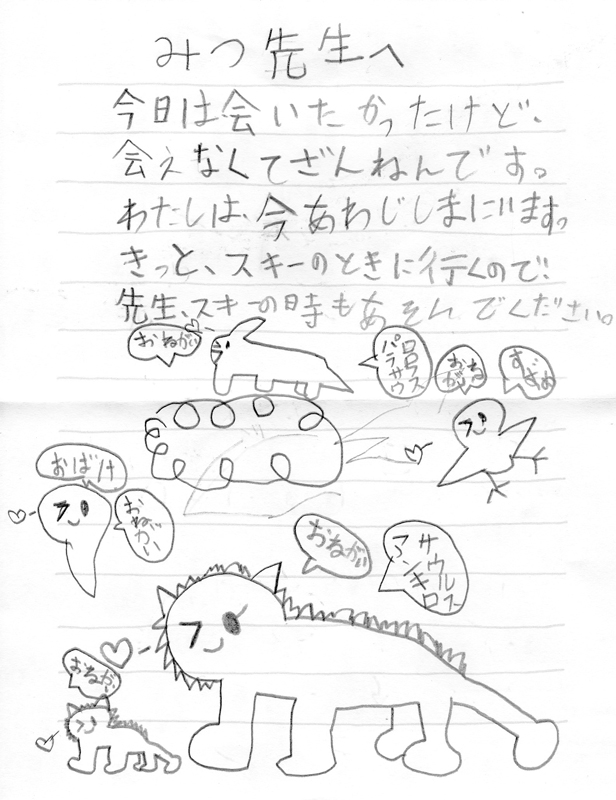 みつ先生へ
今日は会いたかったけど、
会えなくてざんねんです。
わたしは、今あわじしまにいます。
きっと、スキーのときに行くので、
先生、スキーの時もあそんでください。
おねがい
パラサウ
すずめ
おばけ
おねがい
おねがい
アンキロ
サウルス
おねがい